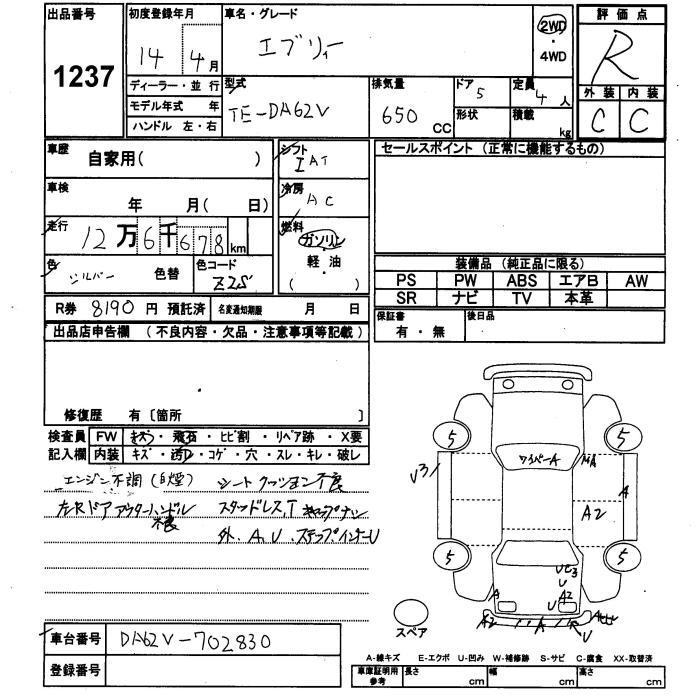 出品番号 初度登録年月 車名・グレード 評価点
1237
14 4月
エブリィ
2WD
・
4WD
R
ディーラー・並行 型式 排気量 ドア 5 定員 4人 外装 内装
モデル年式 年
TE-DA62V 650 CC 形状 積載 kg C C
ハンドル 左・右
車歴 自家用( ) シフト IAT セールスポイント (正常に機能するもの)
車検 年 月( 日) 冷房 AC
走行 12万6千678km 燃料 ガソリン
・
軽・油
( )
色 シルバー 色替 色コード Z2S
装備品 (純正品に限る)
PS PW ABS エアB AW
SR ナビ TV 本革
R券 8190 円 預託済 名変通知期限 月 日
保証書 有・無 後日品
出品店申告欄 (不良内容・欠品・注意事項等記載)
修復歴 有〔箇所 〕
検査員 FW キズ・飛石・ヒビ割・リペア跡・X要
記入欄 内装 キズ・汚れ・コゲ・穴・スレ・キレ・破レ
エンジン不調(白煙) シートクッション不良
左R ドアアウターハンドル不良 スタッドレス,T キャップナシ
外、A,U、ステップインナーU
5 5
ワイパーA A
U3 A
A2
5 5
U3
U
A A2
U
A2 A U
スペア
車台番号 DA62V-702830
登録番号
A-線キズ E-エクボ U-凹み W-補修跡 S-サビ C-腐食 XX-取替済
車庫証明用参考 長さ cm 幅 cm 高さ cm